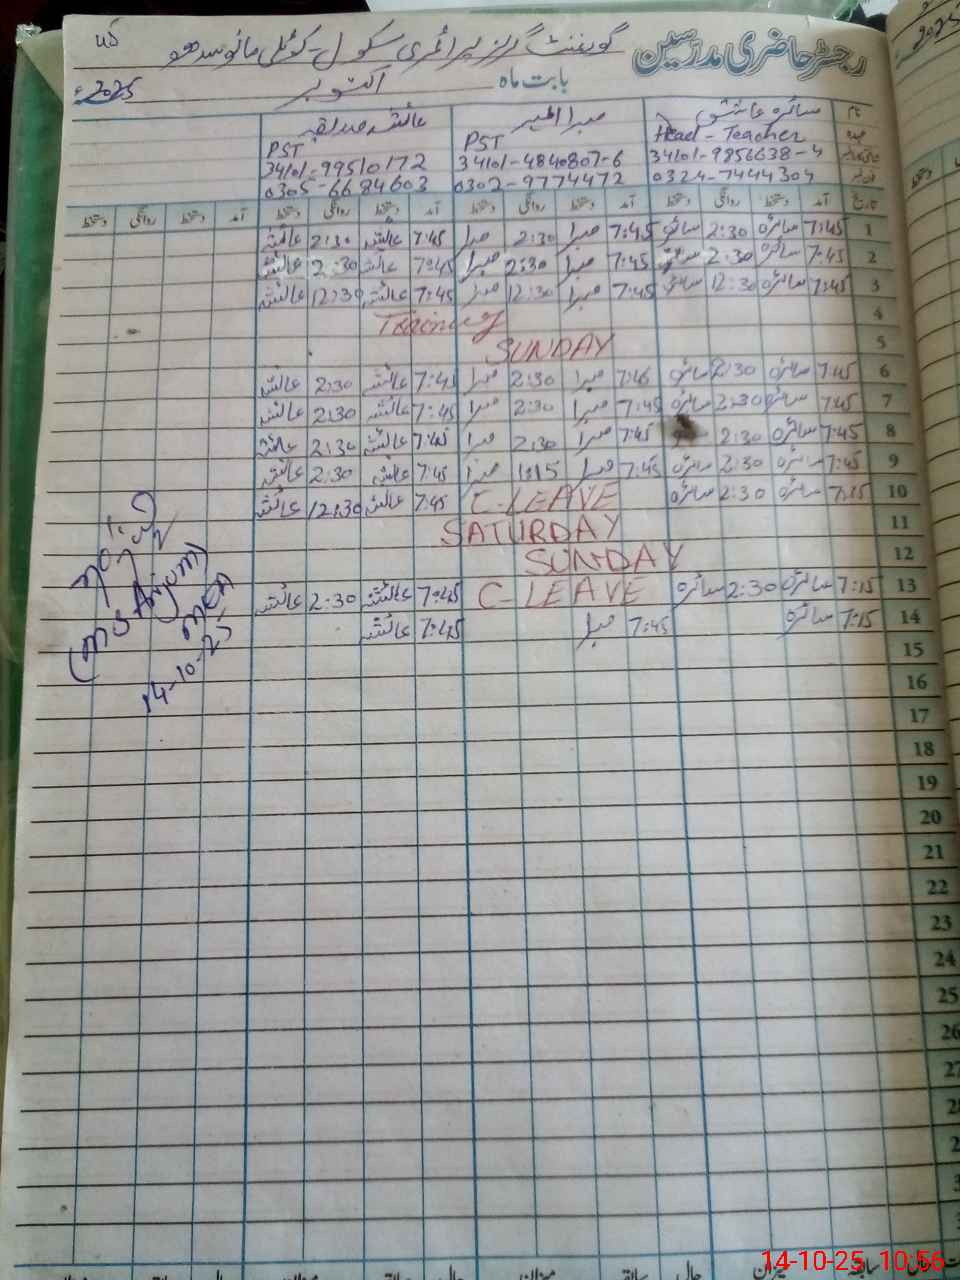 45
گورنمنٹ گرلز پرائمری سکول - کوٹلی مانو سدھو
رجسٹر حاضری مدرسین
بابت ماہ اکتوبر 2025ء
نام سائرہ عاشق عائشہ صدیقہ
عہدہ Head - Teacher PST PST
34101-9856638-4 34101-4840807-6 34101-99510172
0324-7444304 0302-9774472 0305-6684603
تاریخ آمد دستخط روانگی دستخط آمد دستخط روانگی دستخط آمد دستخط روانگی دستخط آمد دستخط روانگی دستخط
1 7:45 سائرہ 2:30 سائرہ 7:45 2:30 7:45 عائشہ 2:30 عائشہ
2 7:45 سائرہ 2:30 7:45 2:30 7:45 عائشہ 2:30 عائشہ
3 7:45 سائرہ 12:30 سائرہ 7:45 12:30 7:45 عائشہ 12:30 عائشہ
4 Training
5 SUNDAY
6 7:45 سائرہ 2:30 سائرہ 7:45 2:30 7:45 عائشہ 2:30 عائشہ
7 7:45 سائرہ 2:30 سائرہ 7:45 2:30 7:45 عائشہ 2:30 عائشہ
8 7:45 سائرہ 2:30 7:45 2:30 7:45 عائشہ 2:30 عائشہ
9 7:45 سائرہ 2:30 سائرہ 7:45 1:15 7:45 عائشہ 2:30 عائشہ
10 7:15 سائرہ 2:30 سائرہ C-LEAVE 7:45 عائشہ 12:30 عائشہ
11 SATURDAY
12 SUNDAY
13 7:15 سائرہ 2:30 سائرہ C-LEAVE 7:45 عائشہ 2:30 عائشہ
14 7:15 سائرہ 7:45 7:45 عائشہ
(Ms Anjum)
MEA
14-10-25
15
16
17
18
19
20
21
22
23
24
25
26
27
14-10-25 10:56